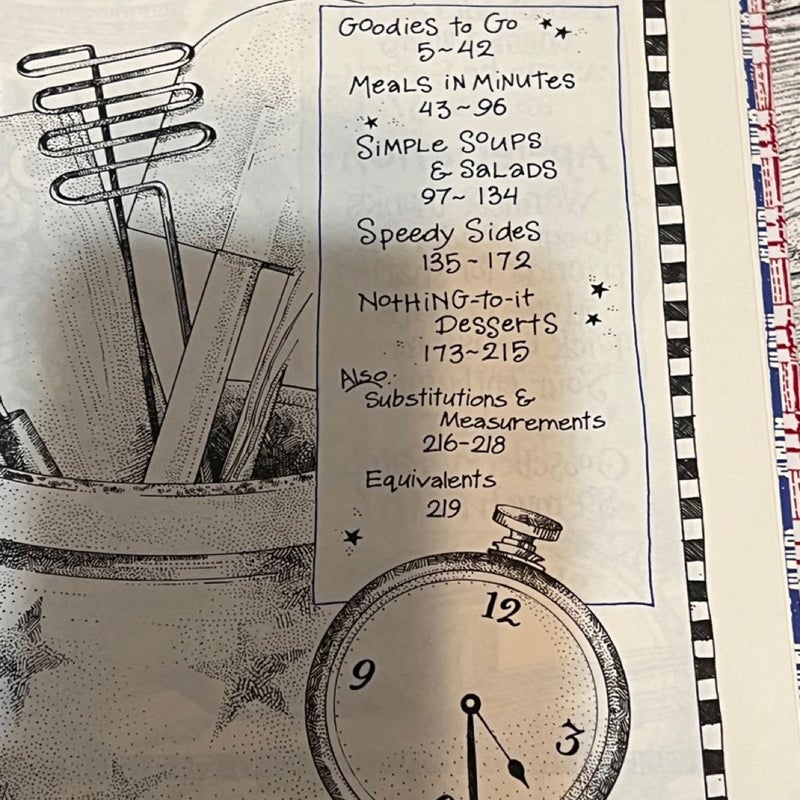 Goodies to Go
5~42
Meals in Minutes
43~96
Simple Soups
& Salads
97~134
Speedy Sides
135~172
Nothing-to-it
Desserts
173~215
Also:
Substitutions &
Measurements
216-218
Equivalents
219
12
9
3